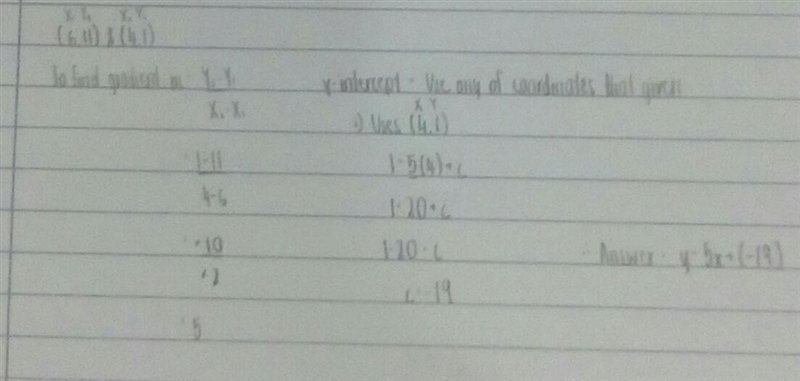 x₁ y₁ x₂ y₂
(6,11) & (4,1)
To find gradient m = y₂-y₁
x₂-x₁
= 1-11
4-6
= -10
-2
= 5
y-intercept = Use any of coordinates that given
x y
∴) Uses (4,1)
1=5(4)+c
1=20+c
1-20=c
c=-19
∴ Answer = y=5x+(-19)